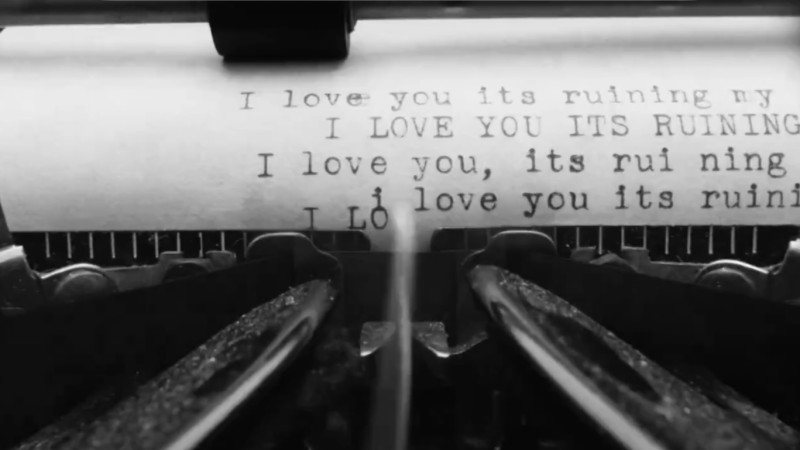 I love you its ruining my
I LOVE YOU ITS RUINING
I love you, its rui ning
i love you its ruini
I LO